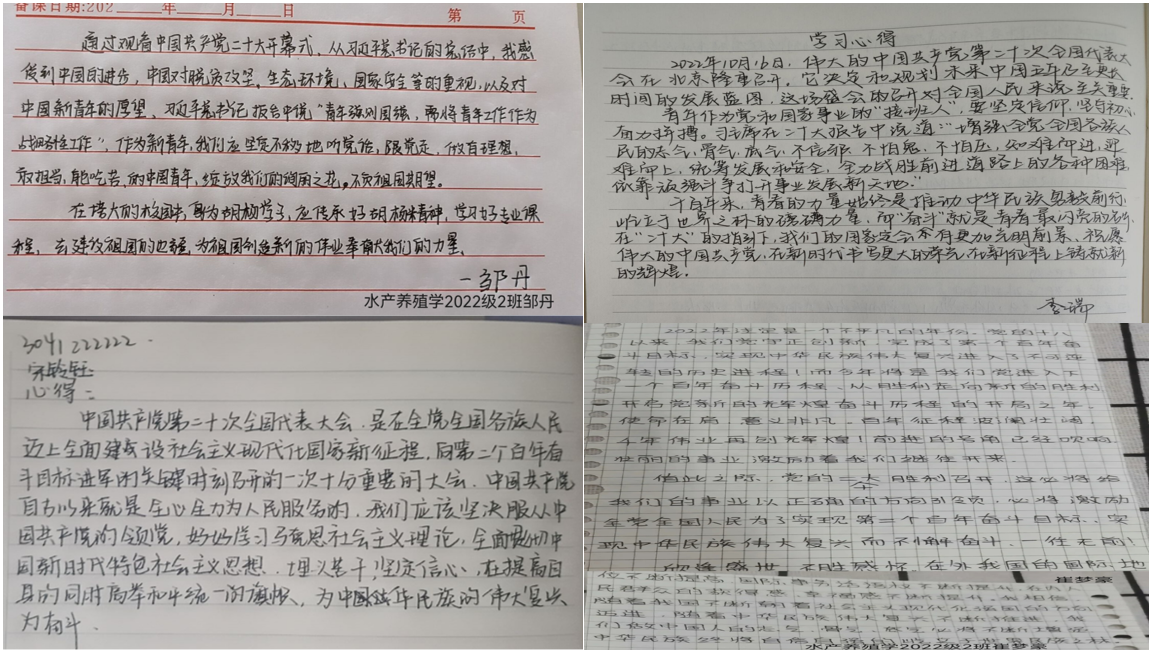 备课日期:202 年 月 日 第 页
通过观看中国共产党二十大开幕式，从习近平总书记的总结中，我感
受到中国的进步，中国对脱贫攻坚。生态环境，国家安全等的重视，以及对
中国新青年的厚望。习近平总书记报告中说“青年强则国强，需将青年工作作为
战略性工作”，作为新青年，我们应坚定不移地听党话，跟党走，做有理想，
敢担当，能吃苦，的中国青年，绽放我们的绚丽之花。不负祖国期望。
程，去建设祖国的边疆，为祖国创造新的伟业奉献我们的力量。
一邹丹
水产养殖学2022级2班邹丹
学习心得
2022年10月16日，伟大的中国共产党第二十次全国代表大
会在北京隆重召开。它决定和规划未来中国五年乃至更长
时间的发展蓝图，这场盛会的召开对全国人民来说至关重要
青年作为党和国家事业的“接班人”，要坚定信仰，坚守初心
奋力拼搏。习主席在二十大报告中说道：“增强全党全国各族人
民的志气，骨气，底气，不信邪，不怕鬼，不怕压，知难而进，迎
难而上，统筹发展和安全，全力战胜前进道路上的各种困难
依靠顽强斗争打开事业发展新天地。”
千百年来，青春的力量始终是推动中华民族勇毅前行
屹立于世界之林的磅礴力量，而“奋斗”就是青春最闪亮的
在“二十大”的指引下，我们的国家定会有更加光明前景，祝愿
伟大的中国共产党，在新时代书写更大的荣光，在新征程上铸就新
的辉煌。
李瑞
3041222222.
宋
心得：
中国共产党第二十次全国代表大会，是在全党全国各族人民
迈上全面建设社会主义现代化国家新征程，向第二个百年奋
斗目标进军的关键时刻召开的一次十分重要的大会。中国共产党
自古以来就是全心全力为人民服务的，我们应该坚决服从中
国共产党的领党，好好学习马克思社会主义理论，全面贯彻中
国新时代特色社会主义思想。埋头苦干，坚定信心，在提高自
身的同时高举和平统一的旗帜，为中国中华民族的伟大复兴
为奋斗.
2022年注定是一个不平凡的年份。党的十八
以来，我们党守正创新，完成了第一个百年奋
斗目标，实现中华民族伟大复兴进入了不可逆
转的历史进程！而今年将是我们党进入下
一个百年奋斗历程、从胜利走向新的胜利
开启党新的辉煌奋斗历程的开局之年。
使命在肩，意义非凡。百年征程波澜壮阔
千年伟业再创辉煌！前进的号角已经吹响
壮丽的事业激励着我们继往开来。
值此之际，党的二十大胜利召开，这必将给
我们的事业以正确的方向引领，必将激励
全党全国人民为了实现第二个百年奋斗目标、实
现中华民族伟大复兴而不懈奋斗、一往无前！
欣逢盛世，不胜感怀，在外我国的国际地
崔梦豪
位不断提高，国际事务话语权不断提升，在内人
民群众的获得感、幸福感不断提升，我相信，
随着我国不断朝着社会主义现代化强国的方向
迈进，随着中华民族伟大复兴不断推进，我
水产养殖学2022级2班崔梦豪